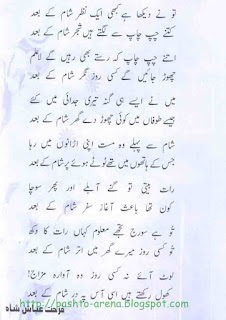 تو نے دیکھا ہے کبھی ایک نظر شام کے بعد
کتنے چپ چاپ سے لگتے ہیں شجر شام کے بعد
اتنے چپ چاپ کہ رستے بھی رہیں گے لاعلم
چھوڑ جائیں گے کسی روز نگر شام کے بعد
میں نے ایسے ہی گنہ تیری جدائی میں کئے
جیسے طوفاں میں کوئی چھوڑ دے گھر شام کے بعد
شام سے پہلے وہ مست اپنی اڑانوں میں رہا
جس کے ہاتھوں میں تھے ٹوٹے ہوئے پر شام کے بعد
رات بیتی تو گنے آبلے اور پھر سوچا
کون تھا باعث آغاز سفر شام کے بعد
تو ہے سورج تجھے معلوم کہاں رات کا دکھ
تو کسی روز میرے گھر میں اتر شام کے بعد
لوٹ آئے نہ کسی روز وہ آوارہ مزاج!
کھول رکھتے ہیں اسی آس پہ در شام کے بعد
فرحت عباس شاہ
http://pashto-arena.blogspot.com